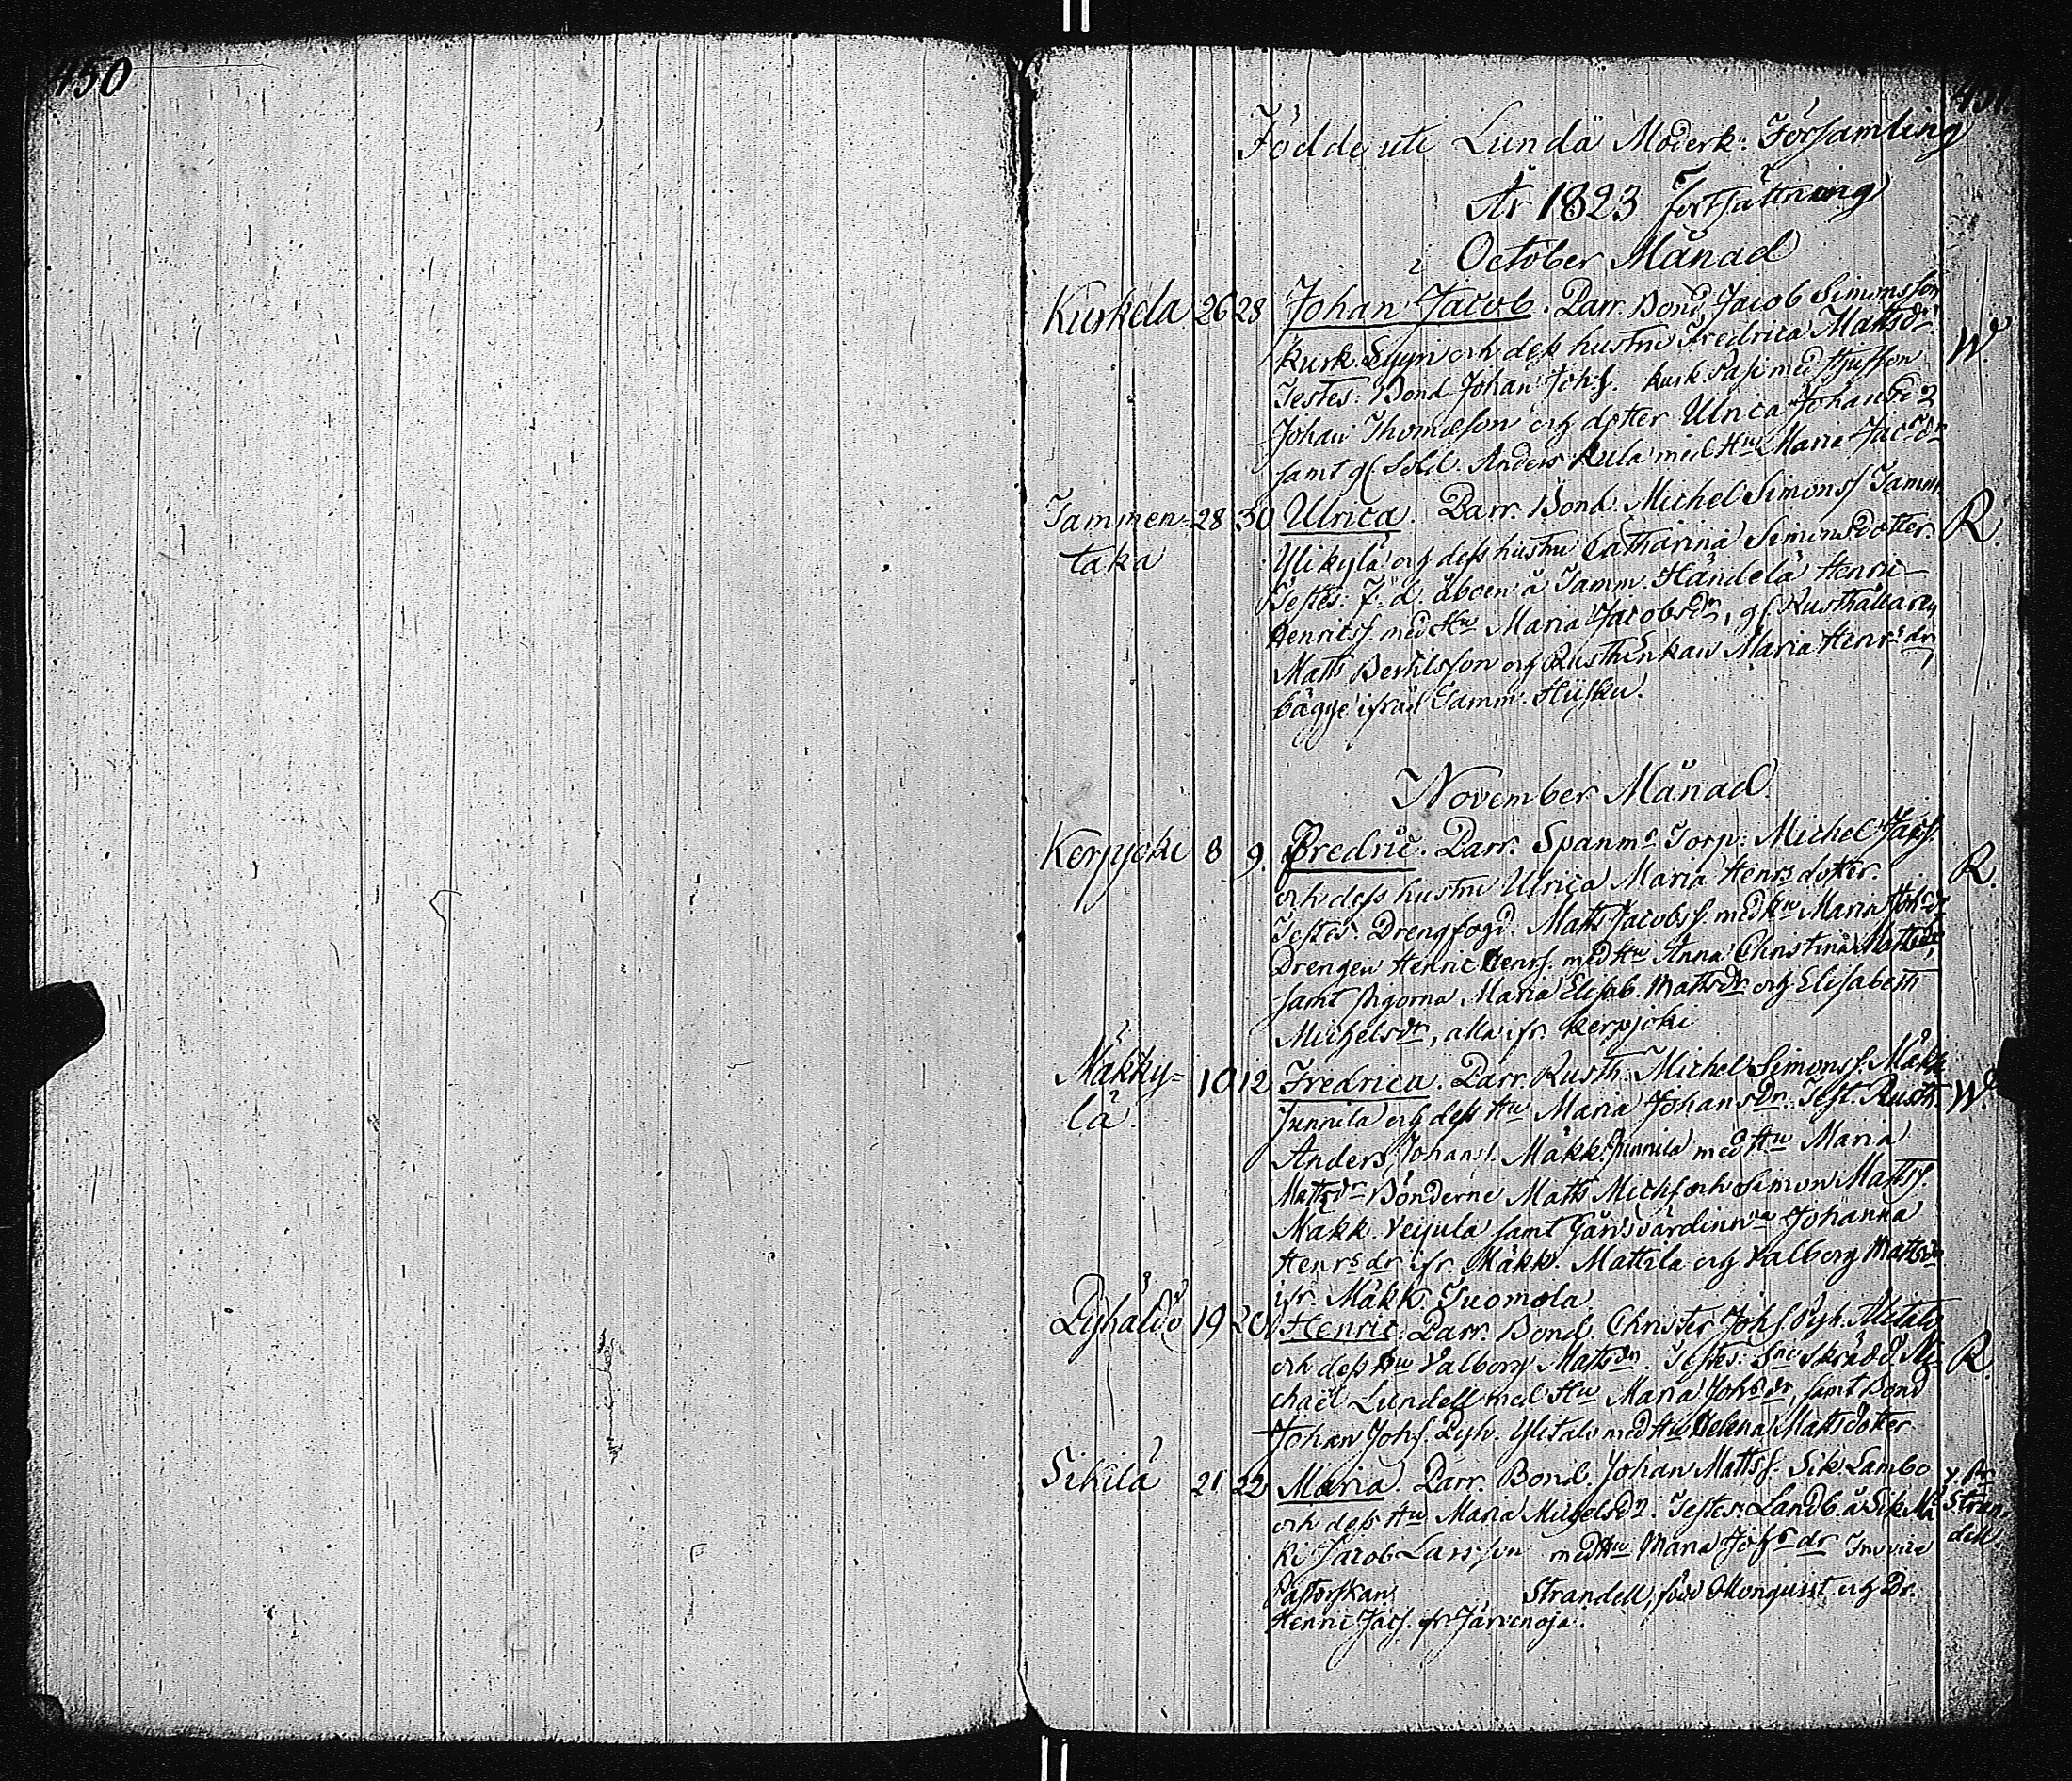 450
451
Födde uti Lundå Moderk: Församling
År 1823 fortsättning
i October Månad
Kurkela 26 28 Johan Jacob. Parr. Bond. Jacob Simonsson
Kurk. Sippri och dess hustru Fredrica Mattsdr W.
Testes: Bond Johan Johs. Kurk. Pasi med
Johan Thomasson och dotter Ulrica Johansdr
samt gl. Sold. Anders Kula med Hu Maria Jacsdr
Tammen- 28 30 Ulrica. Parr. Bond. Michel Simonss Tamm. R.
taka Ylikylä och dess hustru Catharina Simonsdotter.
Testes: F. d. åboen å Tamm. Händelä Henric
Henricss. med Hu Maria Jacobsdr, gl. Rusthållaren
Matts Bertilsson och Rusth Enkan Maria Henrsdr,
bägge ifrån Tamm. Hiisku.
November Månad
Kerpjoki 8 9. Fredric. Parr. Spanms Torp: Michel Jacs. R.
och dess hustru Ulrica Maria Henrsdotter.
Testes. Drengfogd. Matts Jacobss. med Hu Maria Johsdr
Drengen Henric Henrs. med Hu Anna Christina Mattsdr,
samt pigorna Maria Elisab. Mattsdr och Elisabeth
Michelsdr, alla ifr. Kerpjoki
Mäkky- 10 12 Fredrica. Parr. Rusth. Michel Simonss. Mäkk.
lä. Junnila och dess Hu Maria Johansdr. Test. Rusth. W.
Anders Johanss. Mäkk. Junnila med Hu Maria
Mattsdr Bönderne Matts Michs och Simon Mattss.
Mäkk. Veijula samt Gårdsvärdinna Johanna
Henrsdr ifr. Mäkk. Mattila och Valborg Mattsdr
ifr. Mäkk. Tuomola
Pyhäldö 19 20 Henric. Parr. Bond. Christer Johs Pyh. Alitalo
och dess Hu Valborg Mattsdr. Testes: Snes skrädd. Mi- R.
chaël Lundell med Hu Maria Johsdr, samt Bond
Johan Johs. Pyh. Ylitalo med Hu Helena Mattsdotter
Sikilä 21 22 Maria. Parr. Bond. Johan Mattss. Sik. Lambo V. Pr
och dess Hu Maria Michelsdr. Testes: Landb. å Sik. Mä- Stran-
ki Jacob Larsson med Hu Maria Johsdr dell.
Pastorskan Strandell, född Monquist och Dr.
Henric Jacs. ifr. Järvenoja.